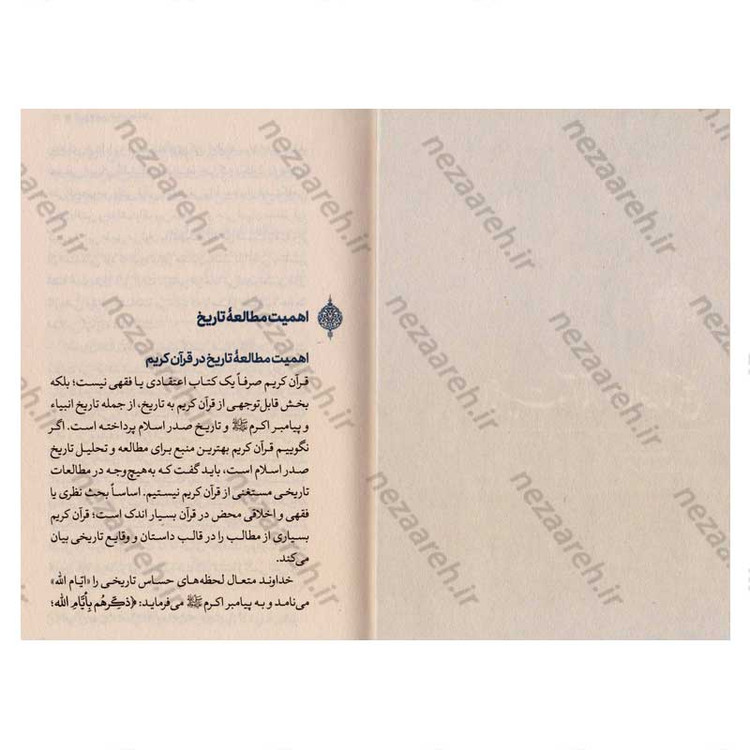 اهمیت مطالعهٔ تاریخ
اهمیت مطالعهٔ تاریخ در قرآن کریم
قرآن کریم صرفاً یک کتاب اعتقادی یا فقهی نیست؛ بلکه
بخش قابل‌توجهی از قرآن کریم به تاریخ، از جمله تاریخ انبیاء
و پیامبر اکرم ﷺ و تاریخ صدر اسلام پرداخته است. اگر
نگوییم قرآن کریم بهترین منبع برای مطالعه و تحلیل تاریخ
صدر اسلام است، باید گفت که به‌هیچ‌وجه در مطالعات
تاریخی مستغنی از قرآن کریم نیستیم. اساساً بحث نظری یا
فقهی و اخلاقی محض در قرآن بسیار اندک است؛ قرآن کریم
بسیاری از مطالب را در قالب داستان و وقایع تاریخی بیان
می‌کند.
خداوند متعال لحظه‌های حساس تاریخی را «ایّام الله»
می‌نامد و به پیامبر اکرم ﷺ می‌فرماید: ﴿ذکّرهُم بِأیّامِ الله؛
nezaareh.ir
nezaareh.ir
nezaareh.ir
nezaareh.ir
nezaareh.ir
nezaareh.ir
nezaareh.ir
nezaareh.ir